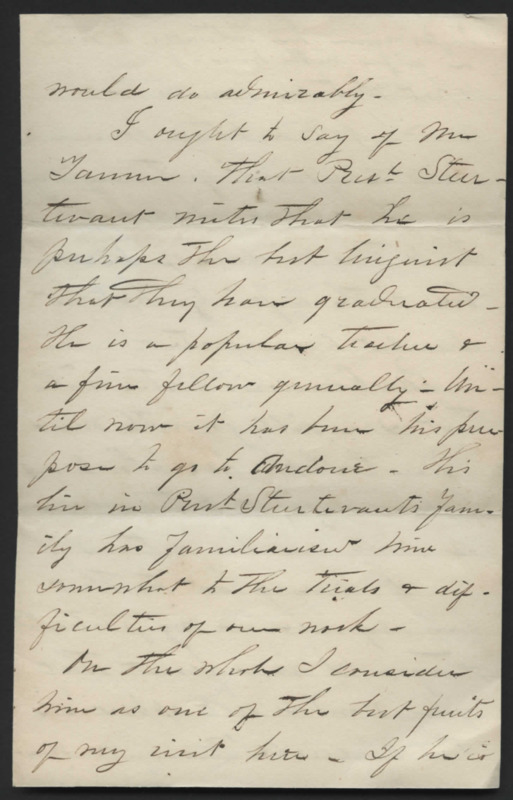 would do admirably -
I ought to say of Mr
Tanner. That Prest. Stur-
tevant writes that he is
perhaps the best linguist
that they have graduated -
He is a popular teacher &
a fine fellow generally - Un-
til now it has been his pur
pose to go to Andover - His
live in Prest. Sturtevants fam-
ily has familiarised him
somewhat to the trials & dif-
ficulties of our work -
On the whole I consider
him as one of the best fruits
of my visit here - If he is